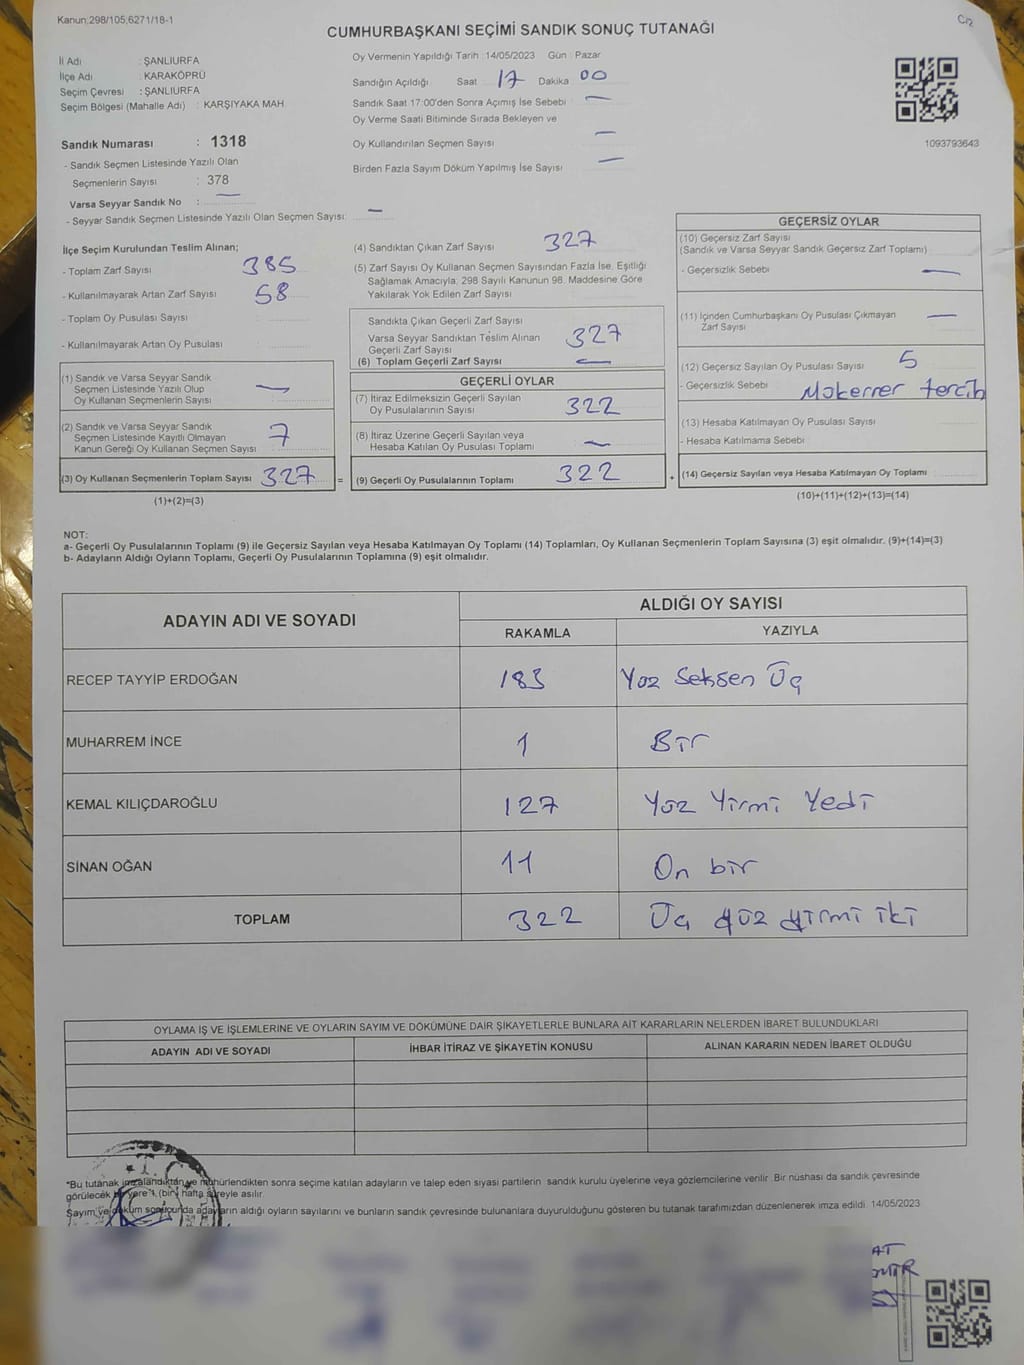 Kanun;298/105,6271/18-1
C/2
CUMHURBAŞKANI SEÇİMİ SANDIK SONUÇ TUTANAĞI
İl Adı : ŞANLIURFA
İlçe Adı : KARAKÖPRÜ
Seçim Çevresi : ŞANLIURFA
Seçim Bölgesi (Mahalle Adı) : KARŞIYAKA MAH.
Sandık Numarası : 1318
- Sandık Seçmen Listesinde Yazılı Olan
Seçmenlerin Sayısı : 378
Varsa Seyyar Sandık No : —
- Seyyar Sandık Seçmen Listesinde Yazılı Olan Seçmen Sayısı: —
Oy Vermenin Yapıldığı Tarih :14/05/2023 Gün : Pazar
Sandığın Açıldığı Saat 17 Dakika 00
Sandık Saat 17:00'den Sonra Açılmış İse Sebebi —
Oy Verme Saati Bitiminde Sırada Bekleyen ve
Oy Kullandırılan Seçmen Sayısı —
Birden Fazla Sayım Döküm Yapılmış İse Sayısı —
1093793643
İlçe Seçim Kurulundan Teslim Alınan;
- Toplam Zarf Sayısı 385
- Kullanılmayarak Artan Zarf Sayısı 58
- Toplam Oy Pusulası Sayısı :
- Kullanılmayarak Artan Oy Pusulası :
(1) Sandık ve Varsa Seyyar Sandık
Seçmen Listesinde Yazılı Olup
Oy Kullanan Seçmenlerin Sayısı —
(2) Sandık ve Varsa Seyyar Sandık
Seçmen Listesinde Kayıtlı Olmayan
Kanun Gereği Oy Kullanan Seçmen Sayısı 7
(3) Oy Kullanan Seçmenlerin Toplam Sayısı 327 =
(1)+(2)=(3)
(4) Sandıktan Çıkan Zarf Sayısı 327
(5) Zarf Sayısı Oy Kullanan Seçmen Sayısından Fazla İse, Eşitliği
Sağlamak Amacıyla; 298 Sayılı Kanunun 98. Maddesine Göre
Yakılarak Yok Edilen Zarf Sayısı
Sandıkta Çıkan Geçerli Zarf Sayısı 327
Varsa Seyyar Sandıktan Teslim Alınan
Geçerli Zarf Sayısı
(6) Toplam Geçerli Zarf Sayısı —
GEÇERLİ OYLAR
(7) İtiraz Edilmeksizin Geçerli Sayılan
Oy Pusulalarının Sayısı 322
(8) İtiraz Üzerine Geçerli Sayılan veya
Hesaba Katılan Oy Pusulası Toplamı —
(9) Geçerli Oy Pusulalarının Toplamı 322 +
GEÇERSİZ OYLAR
(10) Geçersiz Zarf Sayısı
(Sandık ve Varsa Seyyar Sandık Geçersiz Zarf Toplamı)
- Geçersizlik Sebebi —
(11) İçinden Cumhurbaşkanı Oy Pusulası Çıkmayan
Zarf Sayısı —
(12) Geçersiz Sayılan Oy Pusulası Sayısı 5
- Geçersizlik Sebebi Mükerrer tercih
(13) Hesaba Katılmayan Oy Pusulası Sayısı
- Hesaba Katılmama Sebebi
(14) Geçersiz Sayılan veya Hesaba Katılmayan Oy Toplamı
(10)+(11)+(12)+(13)=(14)
NOT:
a- Geçerli Oy Pusulalarının Toplamı (9) ile Geçersiz Sayılan veya Hesaba Katılmayan Oy Toplamı (14) Toplamları, Oy Kullanan Seçmenlerin Toplam Sayısına (3) eşit olmalıdır. (9)+(14)=(3)
b- Adayların Aldığı Oyların Toplamı, Geçerli Oy Pusulalarının Toplamına (9) eşit olmalıdır.
ADAYIN ADI VE SOYADI
ALDIĞI OY SAYISI
RAKAMLA YAZIYLA
RECEP TAYYİP ERDOĞAN 183 Yüz Seksen Üç
MUHARREM İNCE 1 Bir
KEMAL KILIÇDAROĞLU 127 Yüz Yirmi Yedi
SİNAN OĞAN 11 On bir
TOPLAM 322 Üç yüz yirmi iki
OYLAMA İŞ VE İŞLEMLERİNE VE OYLARIN SAYIM VE DÖKÜMÜNE DAİR ŞİKAYETLERLE BUNLARA AİT KARARLARIN NELERDEN İBARET BULUNDUKLARI
ADAYIN ADI VE SOYADI İHBAR İTİRAZ VE ŞİKAYETİN KONUSU ALINAN KARARIN NEDEN İBARET OLDUĞU
*Bu tutanak imzalandıktan ve mühürlendikten sonra seçime katılan adayların ve talep eden siyasi partilerin sandık kurulu üyelerine veya gözlemcilerine verilir. Bir nüshası da sandık çevresinde
görülecek bir yere 1 (bir) hafta süreyle asılır.
Sayım ve döküm sonucunda adayların aldığı oyların sayılarını ve bunların sandık çevresinde bulunanlara duyurulduğunu gösteren bu tutanak tarafımızdan düzenlenerek imza edildi. 14/05/2023